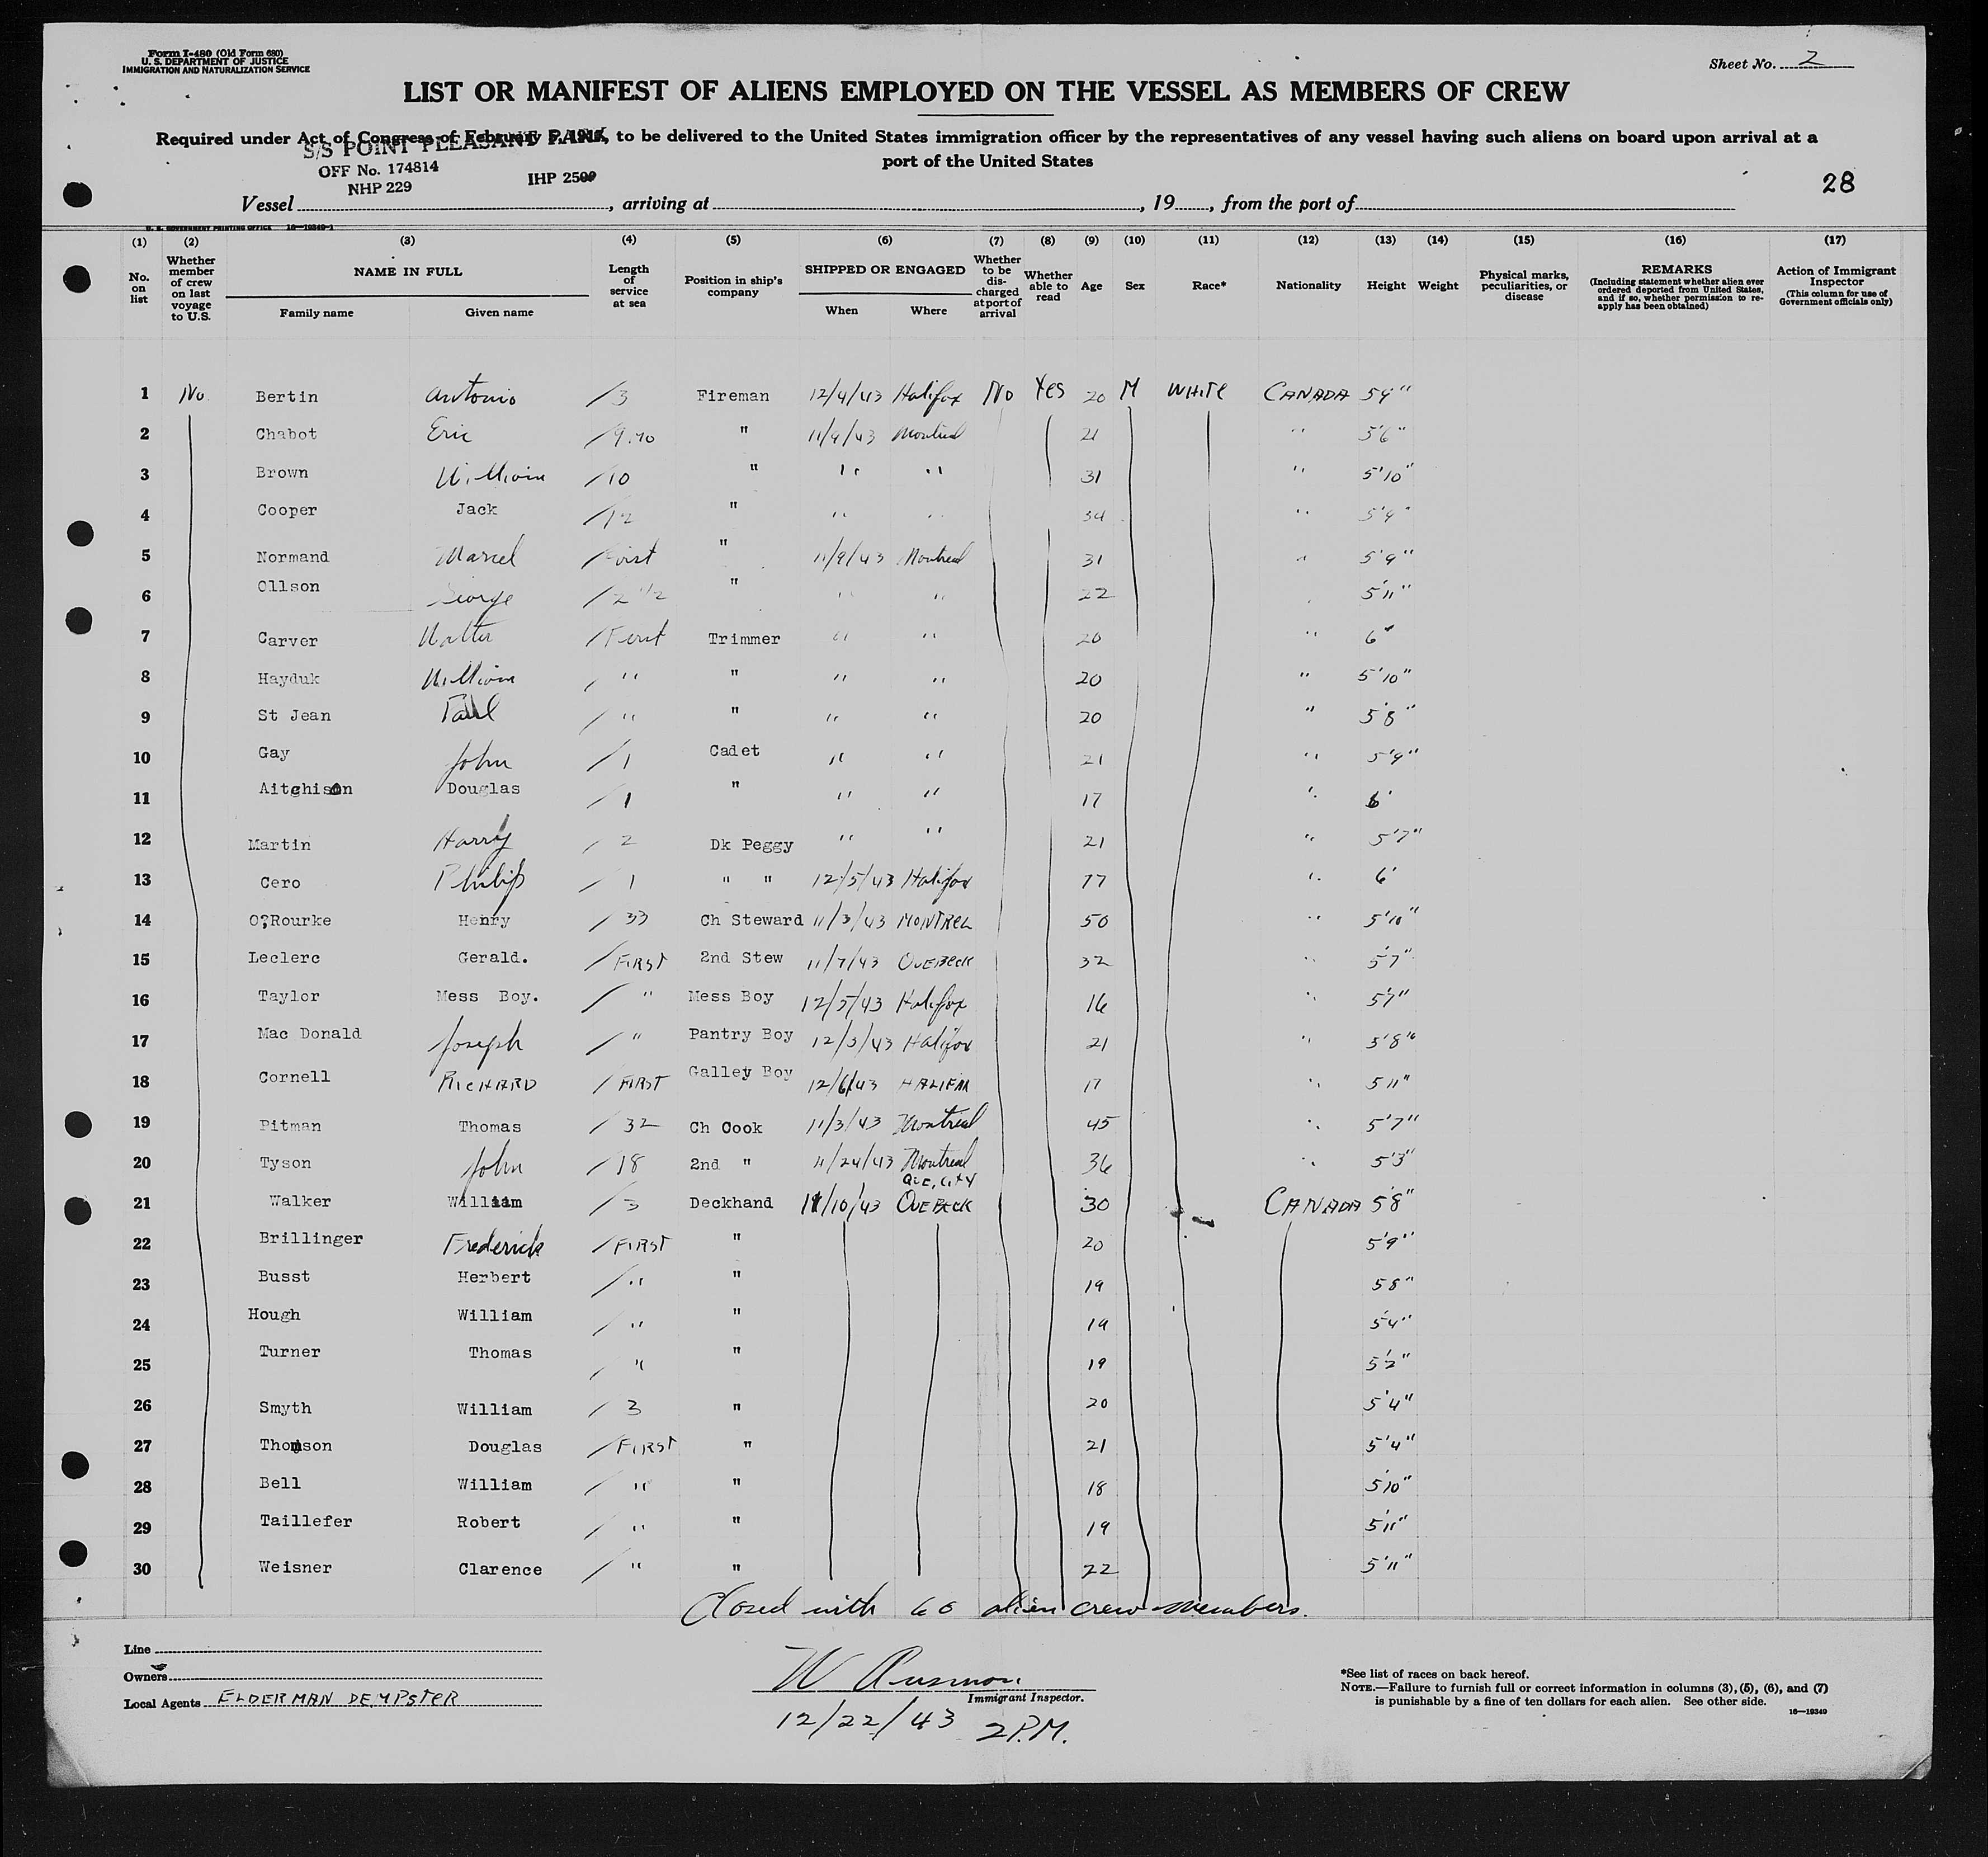 Form I-480 (Old Form 680)
U. S. DEPARTMENT OF JUSTICE
IMMIGRATION AND NATURALIZATION SERVICE
Sheet No. 2
LIST OR MANIFEST OF ALIENS EMPLOYED ON THE VESSEL AS MEMBERS OF CREW
Required under Act of Congress of February 5, 1917, to be delivered to the United States immigration officer by the representatives of any vessel having such aliens on board upon arrival at a
port of the United States
S/S POINT PLEASANT PARK
OFF No. 174814
NHP 229
IHP 2500
28
Vessel , arriving at , 19 , from the port of
U. S. GOVERNMENT PRINTING OFFICE 16—19349-1
(1) (2) (3) (4) (5) (6) (7) (8) (9) (10) (11) (12) (13) (14) (15) (16) (17)
No. on list
Whether member of crew on last voyage to U.S.
NAME IN FULL
Family name Given name
Length of service at sea
Position in ship's company
SHIPPED OR ENGAGED
When Where
Whether to be discharged at port of arrival
Whether able to read
Age Sex Race* Nationality Height Weight
Physical marks, peculiarities, or disease
REMARKS
(Including statement whether alien ever ordered deported from United States, and if so, whether permission to re-apply has been obtained)
Action of Immigrant Inspector
(This column for use of Government officials only)
1 No Bertin Antonio / 3 Fireman 12/4/43 Halifax No Yes 20 M WHITE CANADA 59"
2 Chabot Eric / " 11/9/43 Montreal 21 " 5'6"
3 Brown William / 10 " " " 31 " 5'10"
4 Cooper Jack / 12 " " " 34 " 5'9"
5 Normand Marcel / First " 11/9/43 Montreal 31 " 5'9"
6 Ollson George / 2 1/2 " " " 22 5'11"
7 Carver Walter / First Trimmer " " 20 " 6'
8 Hayduk William / " " " " 20 " 5'10"
9 St Jean Paul / " " " " 20 " 5'8"
10 Gay John / 1 Cadet " " 21 " 5'9"
11 Aitchison Douglas / 1 " " " 17 " 6'
12 Martin Harry / 2 Dk Peggy " " 21 " 5'7"
13 Cero Philip / 1 " " 12/5/43 Halifax 17 " 6'
14 O'Rourke Henry / 33 Ch Steward 11/3/43 MONTREL 50 " 5'10"
15 Leclerc Gerald. / FIRST 2nd Stew 11/7/43 QUEBECK 32 " 5'7"
16 Taylor Mess Boy. / " Mess Boy 12/5/43 Halifax 16 " 5'7"
17 Mac Donald Joseph / " Pantry Boy 12/5/43 Halifax 21 " 5'8"
18 Cornell RICHARD / FIRST Galley Boy 12/6/43 HALIFAX 17 " 5 11"
19 Pitman Thomas / 32 Ch Cook 11/3/43 Montreal 45 " 5'7"
20 Tyson John / 18 2nd " 11/24/43 Montreal 36 " 5'3"
QUE, CITY
21 Walker William / 3 Deckhand 11/10/43 QUEBECK 30 CANADA 5'8"
22 Brillinger Frederick / FIRST " 20 5'9"
23 Busst Herbert / " " 19 5 8"
24 Hough William / " " 19 5'4"
25 Turner Thomas / " " 19 5'2"
26 Smyth William / 3 " 20 5'4"
27 Thomson Douglas / FIRST " 21 5'4"
28 Bell William / " " 18 5'10"
29 Taillefer Robert / " " 19 5'11"
30 Weisner Clarence / " " 22 5'11"
Closed with 60 alien crew members.
Line
Owners
Local Agents ELDERMAN DEMPSTER
W
Immigrant Inspector.
12/22/43 2 P.M.
*See list of races on back hereof.
NOTE.—Failure to furnish full or correct information in columns (3), (5), (6), and (7)
is punishable by a fine of ten dollars for each alien. See other side.
16—19349